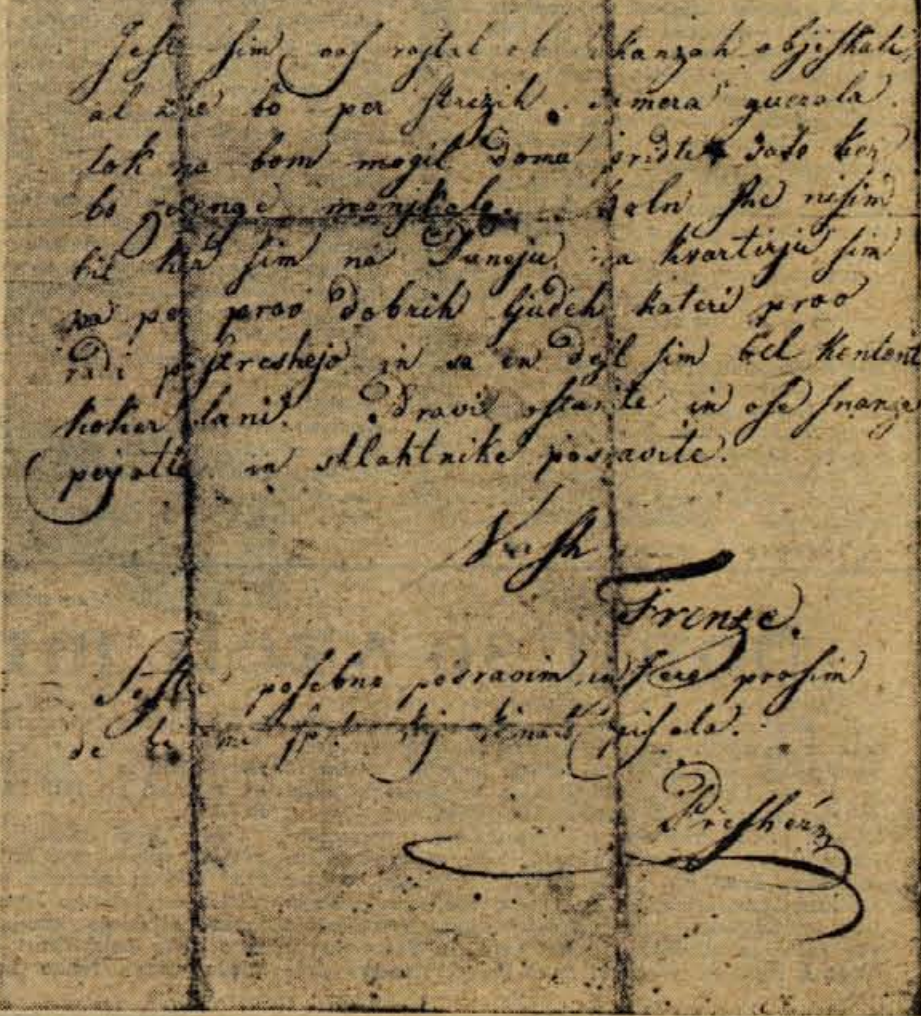 Jest sim vas rajtal ob vakanzah objiskati,
al zhe bo per Strizih zamera guerala
tok na bom mogil doma pridti zato ker
bo zeringe manjkalo. Boln she nisim
bil kar sim na Dunaju, na kvartirju sim
pa per prav dobrih ljudeh kateri prav
radi postreshejo in sa en dejl sim bel kontent
kokar lani. Sdravi ostanite in vse snanze
perjatle in shlahtnike posravite.
Vash
Franze.
Sestre posebno posravim, in prosim
de bi mi pisala.
Preshérn